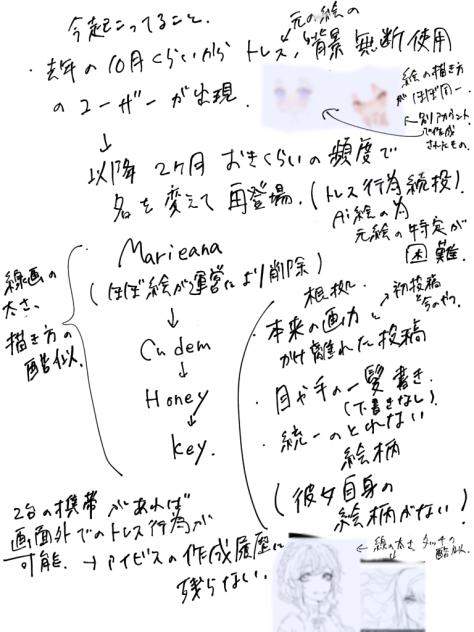 今起こってること.
元の絵の
・去年の10月くらいからトレス、背景無断使用
のユーザーが出現.
絵の描き方
がほぼ同一.
←別アカウント
で作成
されたもの.
↓
以降 2ヶ月おきくらいの頻度で
名を変えて再登場.(トレス行為続投)
Ai絵の為
元絵の特定が
困難.
線画の
太さ、
描き方の
酷似.
・Marieana
(ほぼ絵が運営により削除)
↓
Cudem
↓
Honey
↓
key.
根拠.
・本来の画力と
かけ離れた投稿
→初投稿
と今のやつ.
・目や手の一髪書き.
(下書きなし)
・統一のとれない
絵柄
(彼女自身の
絵柄がない!)
2台の携帯があれば
画面外でのトレス行為が
可能. →アイビスの作成履歴に
残らない.
←線の太さ タッチの
酷似.